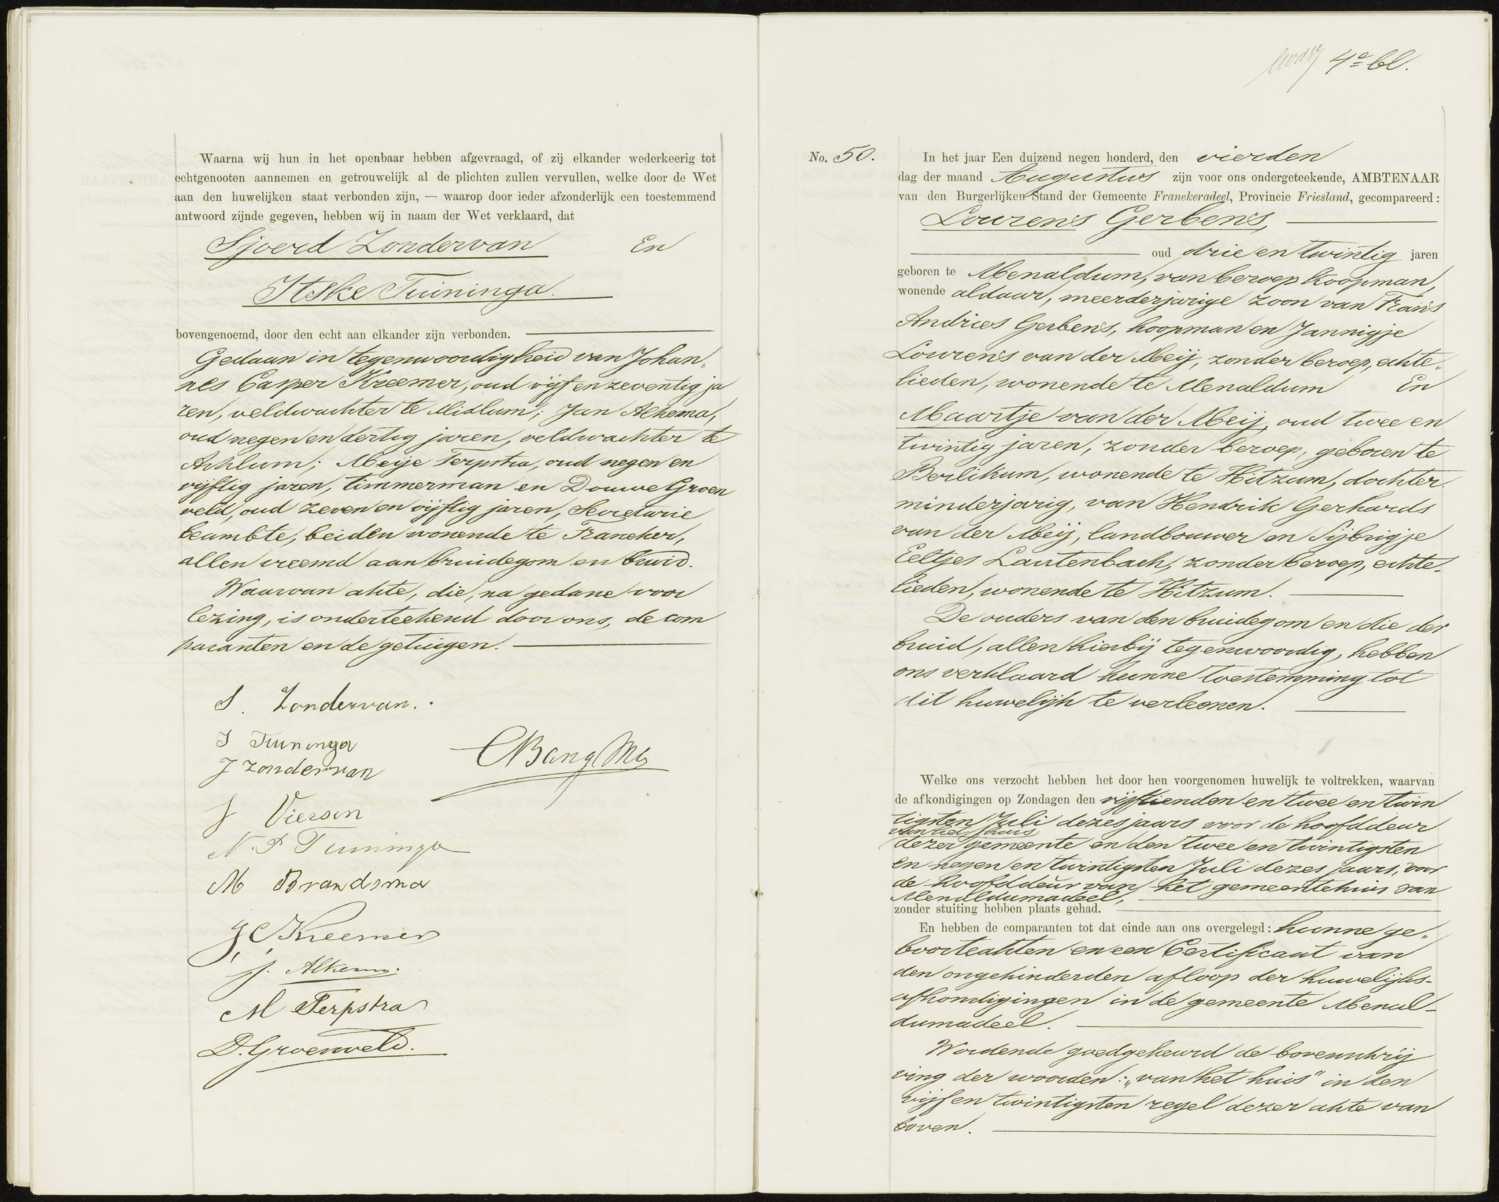 Waarna wij hun in het openbaar hebben afgevraagd, of zij elkander wederkeerig tot
echtgenooten aannemen en getrouwelijk al de plichten zullen vervullen, welke door de Wet
aan den huwelijken staat verbonden zijn, — waarop door ieder afzonderlijk een toestemmend
antwoord zijnde gegeven, hebben wij in naam der Wet verklaard, dat
Sjoerd Zondervan En
Itske Tuininga.
bovengenoemd, door den echt aan elkander zijn verbonden.
Gedaan in tegenwoordigheid van Johan,
nes Casper Kreemer, oud vijf en zeventig ja
ren, veldwachter te Midlum; Jan Alkema,
oud negen en dertig jaren, veldwachter te
Achlum; Meije Terpstra, oud negen en
vijftig jaren, timmerman en Douwe Groen
veld, oud zeven en vijftig jaren, Secretarie
beambte, beiden wonende te Franeker,
allen vreemd aan bruidegom en bruid.
Waarvan akte, die, na gedane voor
lezing, is onderteekend door ons, de com
paranten en de getuigen.
S. Zondervan.
I Tuininga
J Zondervan
CBangMa
J Vierson
N. P Tuininga
M Brandsma
J, C, Kreemer
J. Alkema.
M Terpstra
D. Groenveld.
4e bl.
No. 50.
In het jaar Een duizend negen honderd, den vierden
dag der maand Augustus zijn voor ons ondergeteekende, AMBTENAAR
van den Burgerlijken Stand der Gemeente Franekeradeel, Provincie Friesland, gecompareerd:
Lourens Gerbens,
oud drie en twintig jaren
geboren te Menaldum, van beroep koopman,
wonende aldaar, meerderjarige zoon van Frans
Andries Gerbens, koopman en Jannigje
Lourens van der Meij, zonder beroep, echte-
lieden, wonende te Menaldum En
Maartje van der Meij, oud twee en
twintig jaren, zonder beroep, geboren te
Berlikum, wonende te Hitzum, dochter
minderjarig, van Hendrik Gerhards
van der Meij, landbouwer en Sijbrigje
Eeltjes Lautenbach, zonder beroep, echte-
lieden, wonende te Hitzum.
De ouders van den bruidegom en die der
bruid, allen hierbij tegenwoordig, hebben
ons verklaard hunne toestemming tot
dit huwelijk te verleenen.
Welke ons verzocht hebben het door hen voorgenomen huwelijk te voltrekken, waarvan
de afkondigingen op Zondagen den vijftienden en twee en twin
tigsten Juli dezes jaars voor de hoofddeur
van het huis
dezer gemeente en den twee en twintigsten
en negen en twintigsten Juli dezes jaars, voor
de hoofddeur van het gemeentehuis van
Menaldumadeel,
zonder stuiting hebben plaats gehad.
En hebben de comparanten tot dat einde aan ons overgelegd: hunne ge-
boorteakten en een Certificaat van
den ongehinderden afloop der huwelijks-
afkondigingen in de gemeente Menal-
dumadeel.
Wordende goedgekeurd de bovenschrij
ving der woorden: „van het huis" in den
vijf en twintigsten regel dezer akte van
boven.